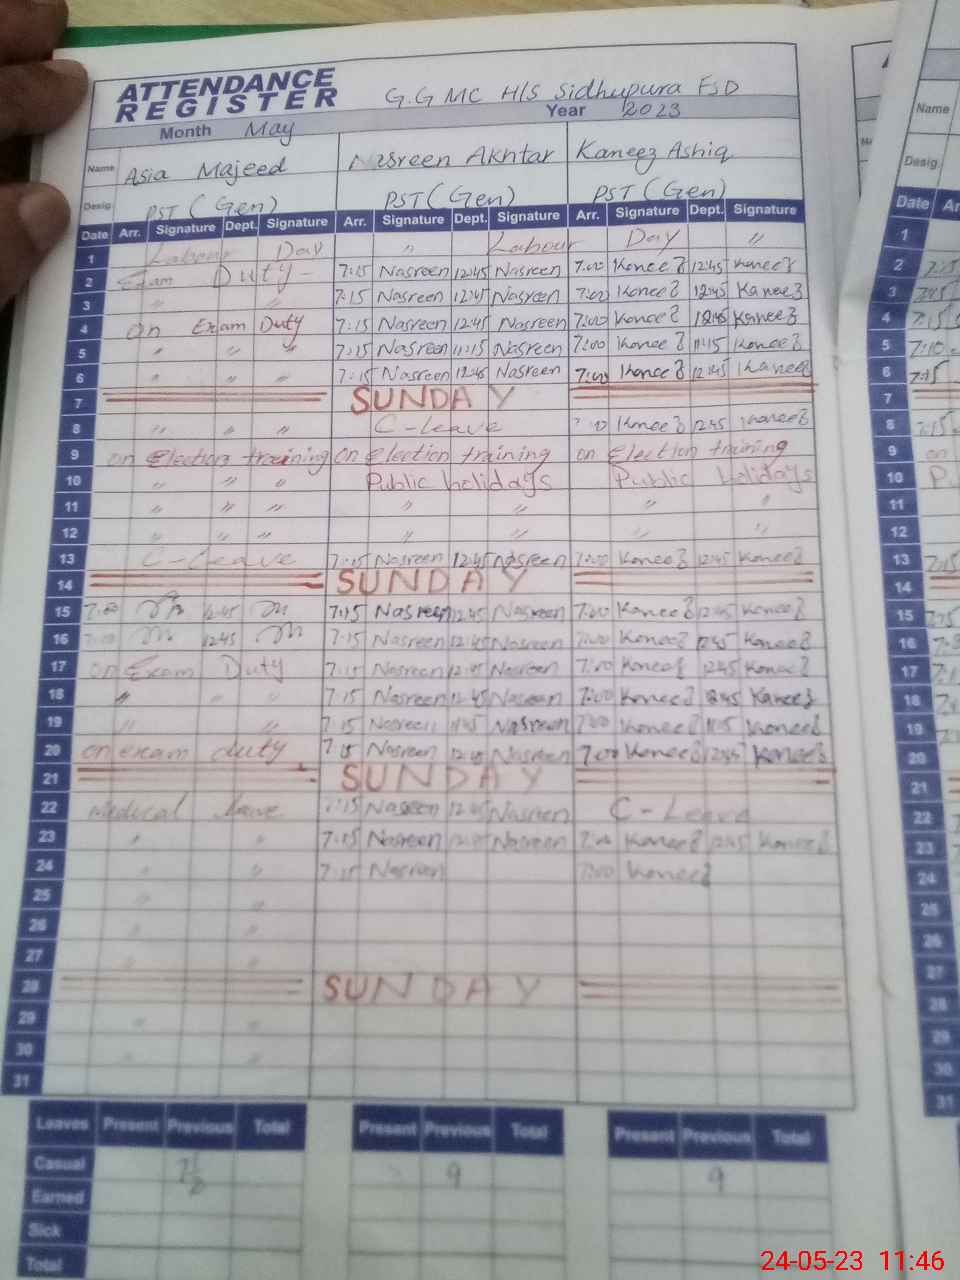 ATTENDANCE REGISTER G.G MC H/S Sidhupura FSD
Month May Year 2023
Name Asia Majeed Nasreen Akhtar Kaneez Ashiq
Desig. PST (Gen) PST (Gen) PST (Gen)
Date Arr. Signature Dept. Signature Arr. Signature Dept. Signature Arr. Signature Dept. Signature
1 Labour Day " Labour Day "
2 Exam Duty - 7:15 Nasreen 12:45 Nasreen 7:00 Kaneez 12:45 Kaneez
3 " " 7:15 Nasreen 12:45 Nasreen 7:00 Kaneez 12:45 Kaneez
4 on Exam Duty 7:15 Nasreen 12:45 Nasreen 7:00 Kaneez 12:45 Kaneez
5 " " " 7:15 Nasreen 11:15 Nasreen 7:00 Kaneez 11:15 Kaneez
6 " " " 7:15 Nasreen 12:45 Nasreen 7:00 Kaneez 12:45 Kaneez
7 SUNDAY
8 " " " C-leave Kaneez 12:45 Kaneez
9 on Election training on Election training on Election training
10 " " " Public holidays Public holidays
11 " " " " " " "
12 " " " " " " "
13 C-leave 7:15 Nasreen 12:45 Nasreen 7:00 Kaneez 12:45 Kaneez
14 SUNDAY
15 7:00 12:45 7:15 Nasreen 12:45 Nasreen 7:00 Kaneez 12:45 Kaneez
16 7:00 12:45 7:15 Nasreen 12:45 Nasreen 7:00 Kaneez 12:45 Kaneez
17 on Exam Duty 7:15 Nasreen 12:45 Nasreen 7:00 Kaneez 12:45 Kaneez
18 " " " 7:15 Nasreen 12:45 Nasreen 7:00 Kaneez 12:45 Kaneez
19 " " 7:15 Nasreen 11:45 Nasreen 7:00 Kaneez 11:15 Kaneez
20 on exam duty 7:15 Nasreen 12:45 Nasreen 7:00 Kaneez 12:45 Kaneez
21 SUNDAY
22 Medical leave 7:15 Nasreen 12:45 Nasreen C-Leave
23 " " 7:15 Nasreen Nasreen 7:00 Kaneez 12:45 Kaneez
24 " " 7:15 Nasreen 7:00 Kaneez
25 " "
26 " "
27 " "
28 SUNDAY
29 " "
30 " "
31
Leaves Present Previous Total Present Previous Total Present Previous Total
Casual 9 9
Earned
Sick
Total
Name
Desig.
Date
1
2 7:15
3
4 7:15
5 7:10
6 7:15
7
8 7:15
9 on
10
11
12
13 7:15
14
15
16
17
18
19
20
21
22
23
24
25
26
27
28
29
30
31
24-05-23 11:46